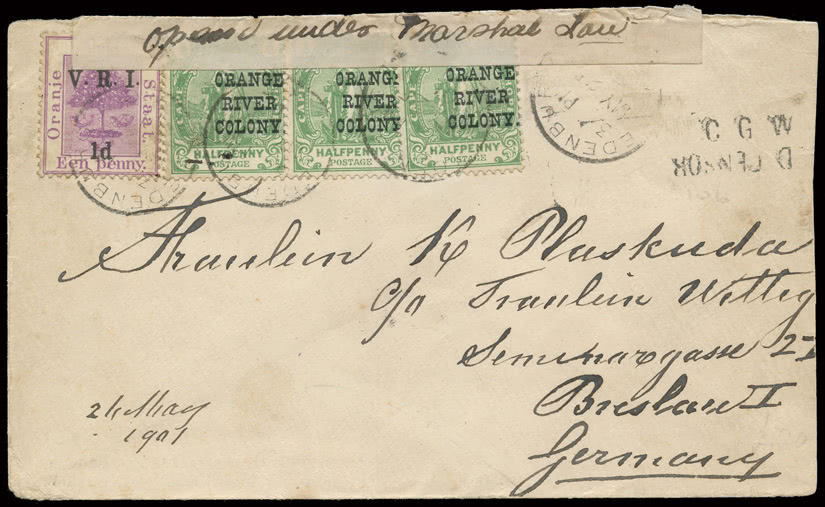 Opened under Marshal Law
V. R. I.
Oranje
Staat.
1d
Een penny.
ORANGE
RIVER
COLONY
HALFPENNY
POSTAGE
ORANGE
RIVER
COLONY
HALFPENNY
POSTAGE
CAPE
ORANGE
RIVER
COLONY
HALFPENNY
POSTAGE
CAPE
EDENB
MY
M. G. O.
Fraulein K Pluskuda
c/o Fraulein Wittig
Seminargasse
Breslau II
Germany
May
1901